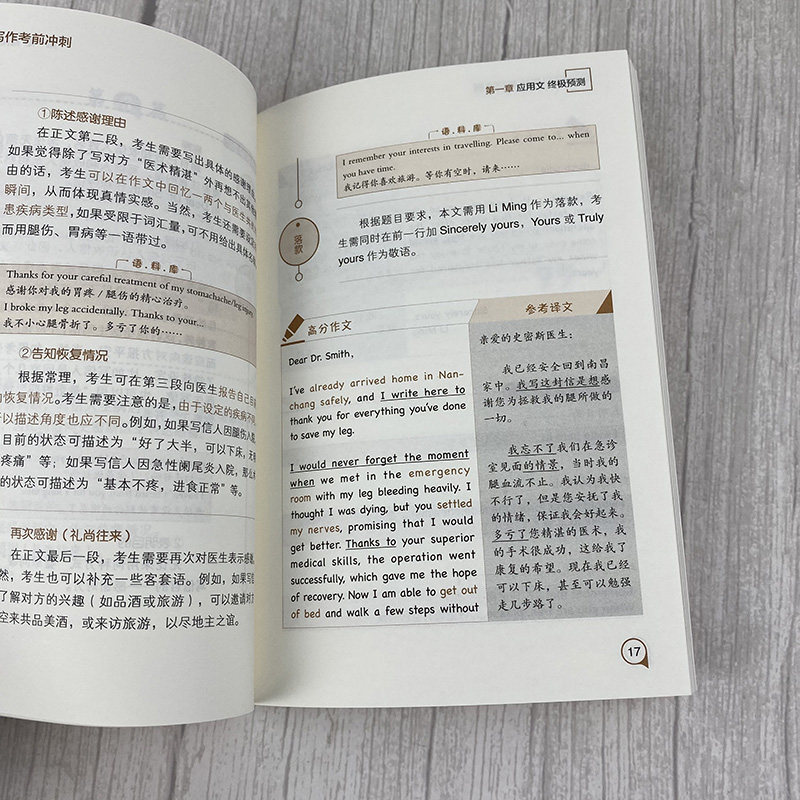 写作考前冲刺
①陈述感谢理由
在正文第二段，考生需要写出具体的感谢理
如果觉得除了写对方“医术精湛”外再想不出其他
由的话，考生可以在作文中回忆一两个与医生
瞬间，从而体现真情实感。当然，考生还需要
患疾病类型，如果受限于词汇量，可不用给出具体
而用腿伤、胃病等一语带过。
语·料·库
Thanks for your careful treatment of my stomachache/leg
感谢你对我的胃疼/腿伤的精心治疗。
I broke my leg accidentally. Thanks to your...
我不小心腿骨折了。多亏了你的……
②告知恢复情况
根据常理，考生可在第三段向医生报告自己
恢复情况。考生需要注意的是，由于设定的疾病不
以描述角度也应不同。例如，如果写信人因腿伤入
目前的状态可描述为“好了大半，可以下床，
疼痛”等；如果写信人因急性阑尾炎入院，那么
的状态可描述为“基本不疼，进食正常”等。
再次感谢（礼尚往来）
在正文最后一段，考生需要再次对医生表示感
然，考生也可以补充一些客套语。例如，如果写
了解对方的兴趣（如品酒或旅游），可以邀请对方
空来共品美酒，或来访旅游，以尽地主之谊。
第一章 应用文 终极预测
语·料·库
I remember your interests in travelling. Please come to... when
you have time.
我记得你喜欢旅游。等你有空时，请来……
落款
根据题目要求，本文需用 Li Ming 作为落款，考
生需同时在前一行加 Sincerely yours，Yours 或 Truly
yours 作为敬语。
高分作文
Dear Dr. Smith,
I've already arrived home in Nan-
chang safely, and I write here to
thank you for everything you've done
to save my leg.
I would never forget the moment
when we met in the emergency
room with my leg bleeding heavily. I
thought I was dying, but you settled
my nerves, promising that I would
get better. Thanks to your superior
medical skills, the operation went
successfully, which gave me the hope
of recovery. Now I am able to get out
of bed and walk a few steps without
参考译文
亲爱的史密斯医生：
我已经安全回到南昌
家中。我写这封信是想感
谢您为拯救我的腿所做的
一切。
我忘不了我们在急诊
室见面的情景，当时我的
腿血流不止。我认为我快
不行了，但是您安抚了我
的情绪，保证我会好起来。
多亏了您精湛的医术，我
的手术很成功，这给了我
康复的希望。现在我已经
可以下床，甚至可以勉强
走几步路了。
17